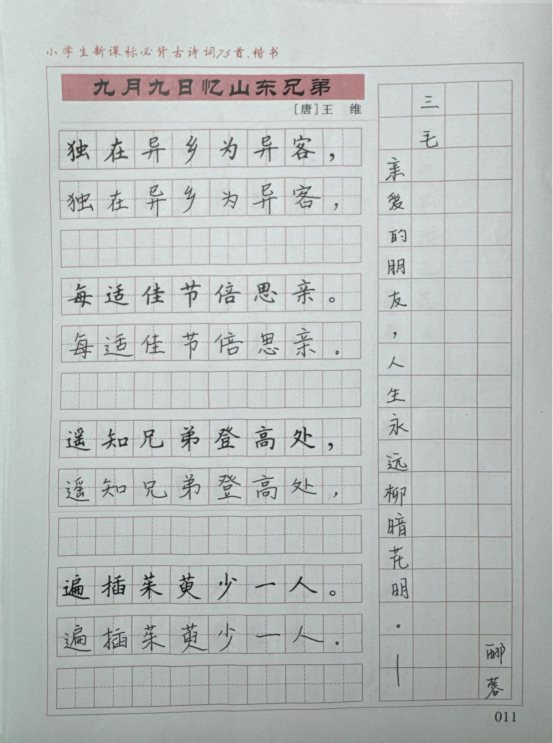 小学生新课标必背古诗词75首.楷书
九月九日忆山东兄弟
[唐]王 维
独在异乡为异客，
独在异乡为异客，
每适佳节倍思亲。
每适佳节倍思亲。
遥知兄弟登高处，
遥知兄弟登高处，
遍插茱萸少一人。
遍插茱萸少一人.
亲爱的朋友，人生永远柳暗花明。—
三毛
郦蓉
011